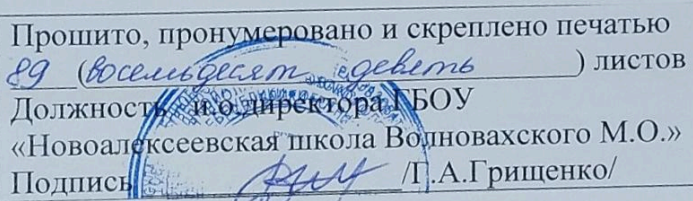 Прошито, пронумеровано и скреплено печатью
89 (восемьдесят девять) листов
Должность и.о.директора ГБОУ
«Новоалексеевская школа Волновахского М.О.»
Подпись /Г.А.Грищенко/